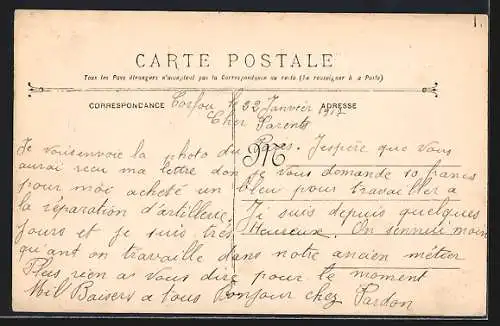 CARTE POSTALE
Tous les Pays étrangers n'acceptent pas la Correspondance au recto (Se renseigner à la Poste)
CORRESPONDANCE
ADRESSE
Corfou le 22 Janvier 1917
Cher Parents
Je vous envoie la photo du Paris. J'espère que vous
aurai recu ma lettre don je vous demande 10 francs
pour moi acheté un bleu pour travailler a
la réparation d'artillerie. Ji suis depuis quelques
Jours et je suis tres Heureux. On sennui moin
qu'ant on travaille dans notre ancien métier
Plus rien a vous dire pour le moment
Mil Baisers a tous Bonjour chez Pardon